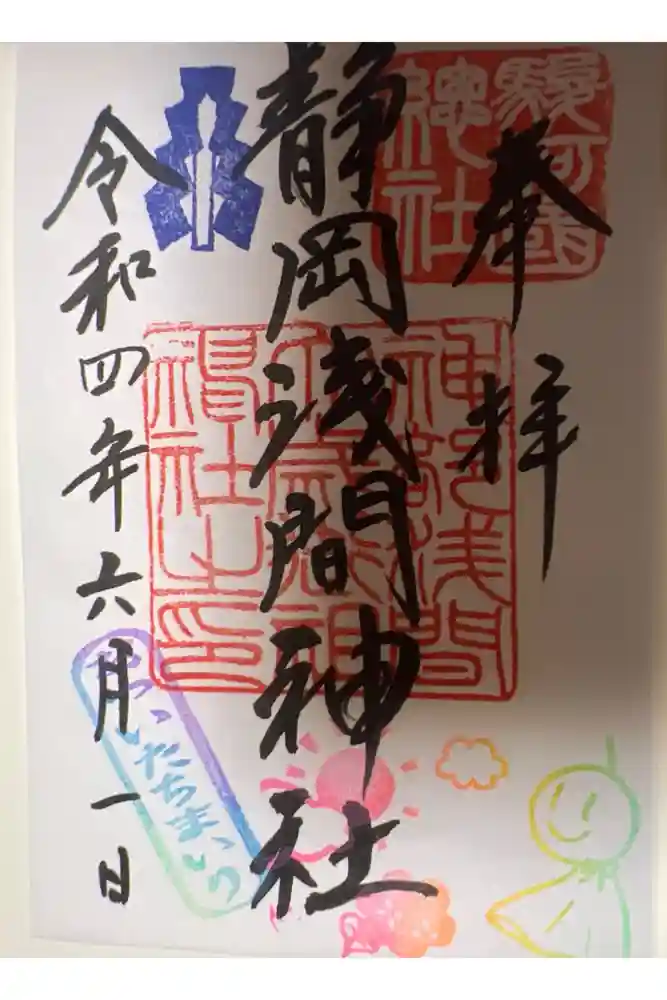 奉拝
駿河國
總社
静岡浅間神社
神部浅間
令和四年六月一日
ついたちまいり